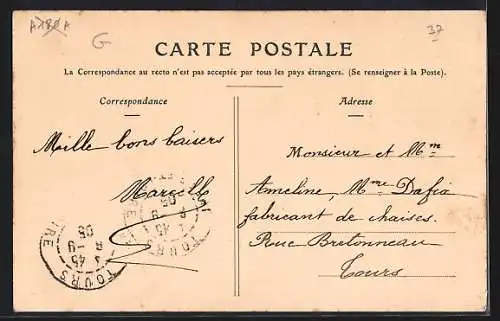 A780A
G
37
CARTE POSTALE
La Correspondance au recto n'est pas acceptée par tous les pays étrangers. (Se renseigner à la Poste).
Correspondance
Adresse
Mille bons baisers
Marcelle
Monsieur et Mme
Ameline, Mme Dafia
fabricant de chaises.
Rue Bretonneau
Tours
TOURS
3 45
8 -9
05